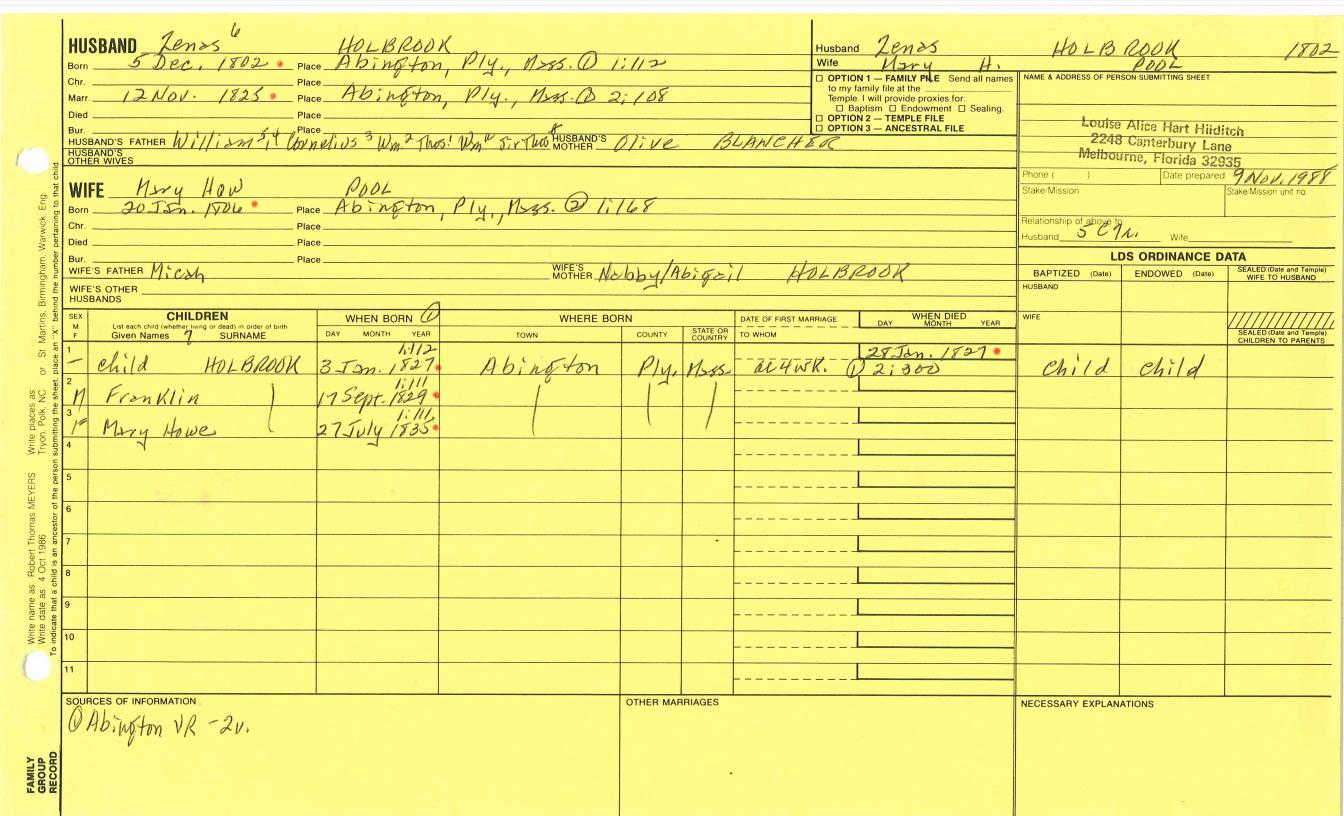 HUSBAND Zenas 6 HOLBROOK
Born 5 Dec. 1802 Place Abington, Ply., Mass. ① 1:112
Chr. Place
Marr 12 Nov. 1825 Place Abington, Ply., Mass. ① 2:108
Died Place
Bur. Place
HUSBAND'S FATHER William 5,4 Cornelius 3 Wm 2 Thos 1 Wm Sir Thos HUSBAND'S MOTHER Olive BLANCHER
HUSBAND'S OTHER WIVES
WIFE Mary How POOL
Born 20 Jan. 1806 Place Abington, Ply., Mass. ② 1:168
Chr. Place
Died Place
Bur. Place
WIFE'S FATHER Micah WIFE'S MOTHER Nabby/Abigail HOLBROOK
WIFE'S OTHER HUSBANDS
Husband Zenas HOLBROOK 1802
Wife Mary H. POOL
☐ OPTION 1 — FAMILY FILE Send all names
to my family file at the
Temple. I will provide proxies for:
☐ Baptism ☐ Endowment ☐ Sealing.
☐ OPTION 2 — TEMPLE FILE
☐ OPTION 3 — ANCESTRAL FILE
NAME & ADDRESS OF PERSON SUBMITTING SHEET
Louise Alice Hart Hilditch
2248 Canterbury Lane
Melbourne, Florida 32935
Phone ( ) Date prepared 9 Nov. 1988
Stake/Mission Stake/Mission unit no.
Relationship of above to
Husband 5C9r. Wife
LDS ORDINANCE DATA
BAPTIZED (Date) ENDOWED (Date) SEALED (Date and Temple) WIFE TO HUSBAND
HUSBAND
WIFE
SEALED (Date and Temple) CHILDREN TO PARENTS
SEX M F CHILDREN WHEN BORN ① WHERE BORN DATE OF FIRST MARRIAGE WHEN DIED
List each child (whether living or dead) in order of birth
Given Names 7 SURNAME DAY MONTH YEAR TOWN COUNTY STATE OR COUNTRY TO WHOM DAY MONTH YEAR
1 1:112 28 Jan. 1827
— child HOLBROOK 3 Jan. 1827 Abington Ply. Mass. ae 4 wk. ① 2:300 child child
2 1:111
M Franklin 17 Sept. 1829
3 1:111
F Mary Howe 27 July 1835
4
5
6
7
8
9
10
11
SOURCES OF INFORMATION OTHER MARRIAGES NECESSARY EXPLANATIONS
① Abington VR - 2v.
FAMILY GROUP RECORD
Write name as Robert Thomas MEYERS Write places as Tryon, Polk, NC or St. Martins, Birmingham, Warwick, Eng.
Write date as 4 Oct 1986
To indicate that a child is an ancestor of the person submitting the sheet, place an "X" behind the number pertaining to that child.